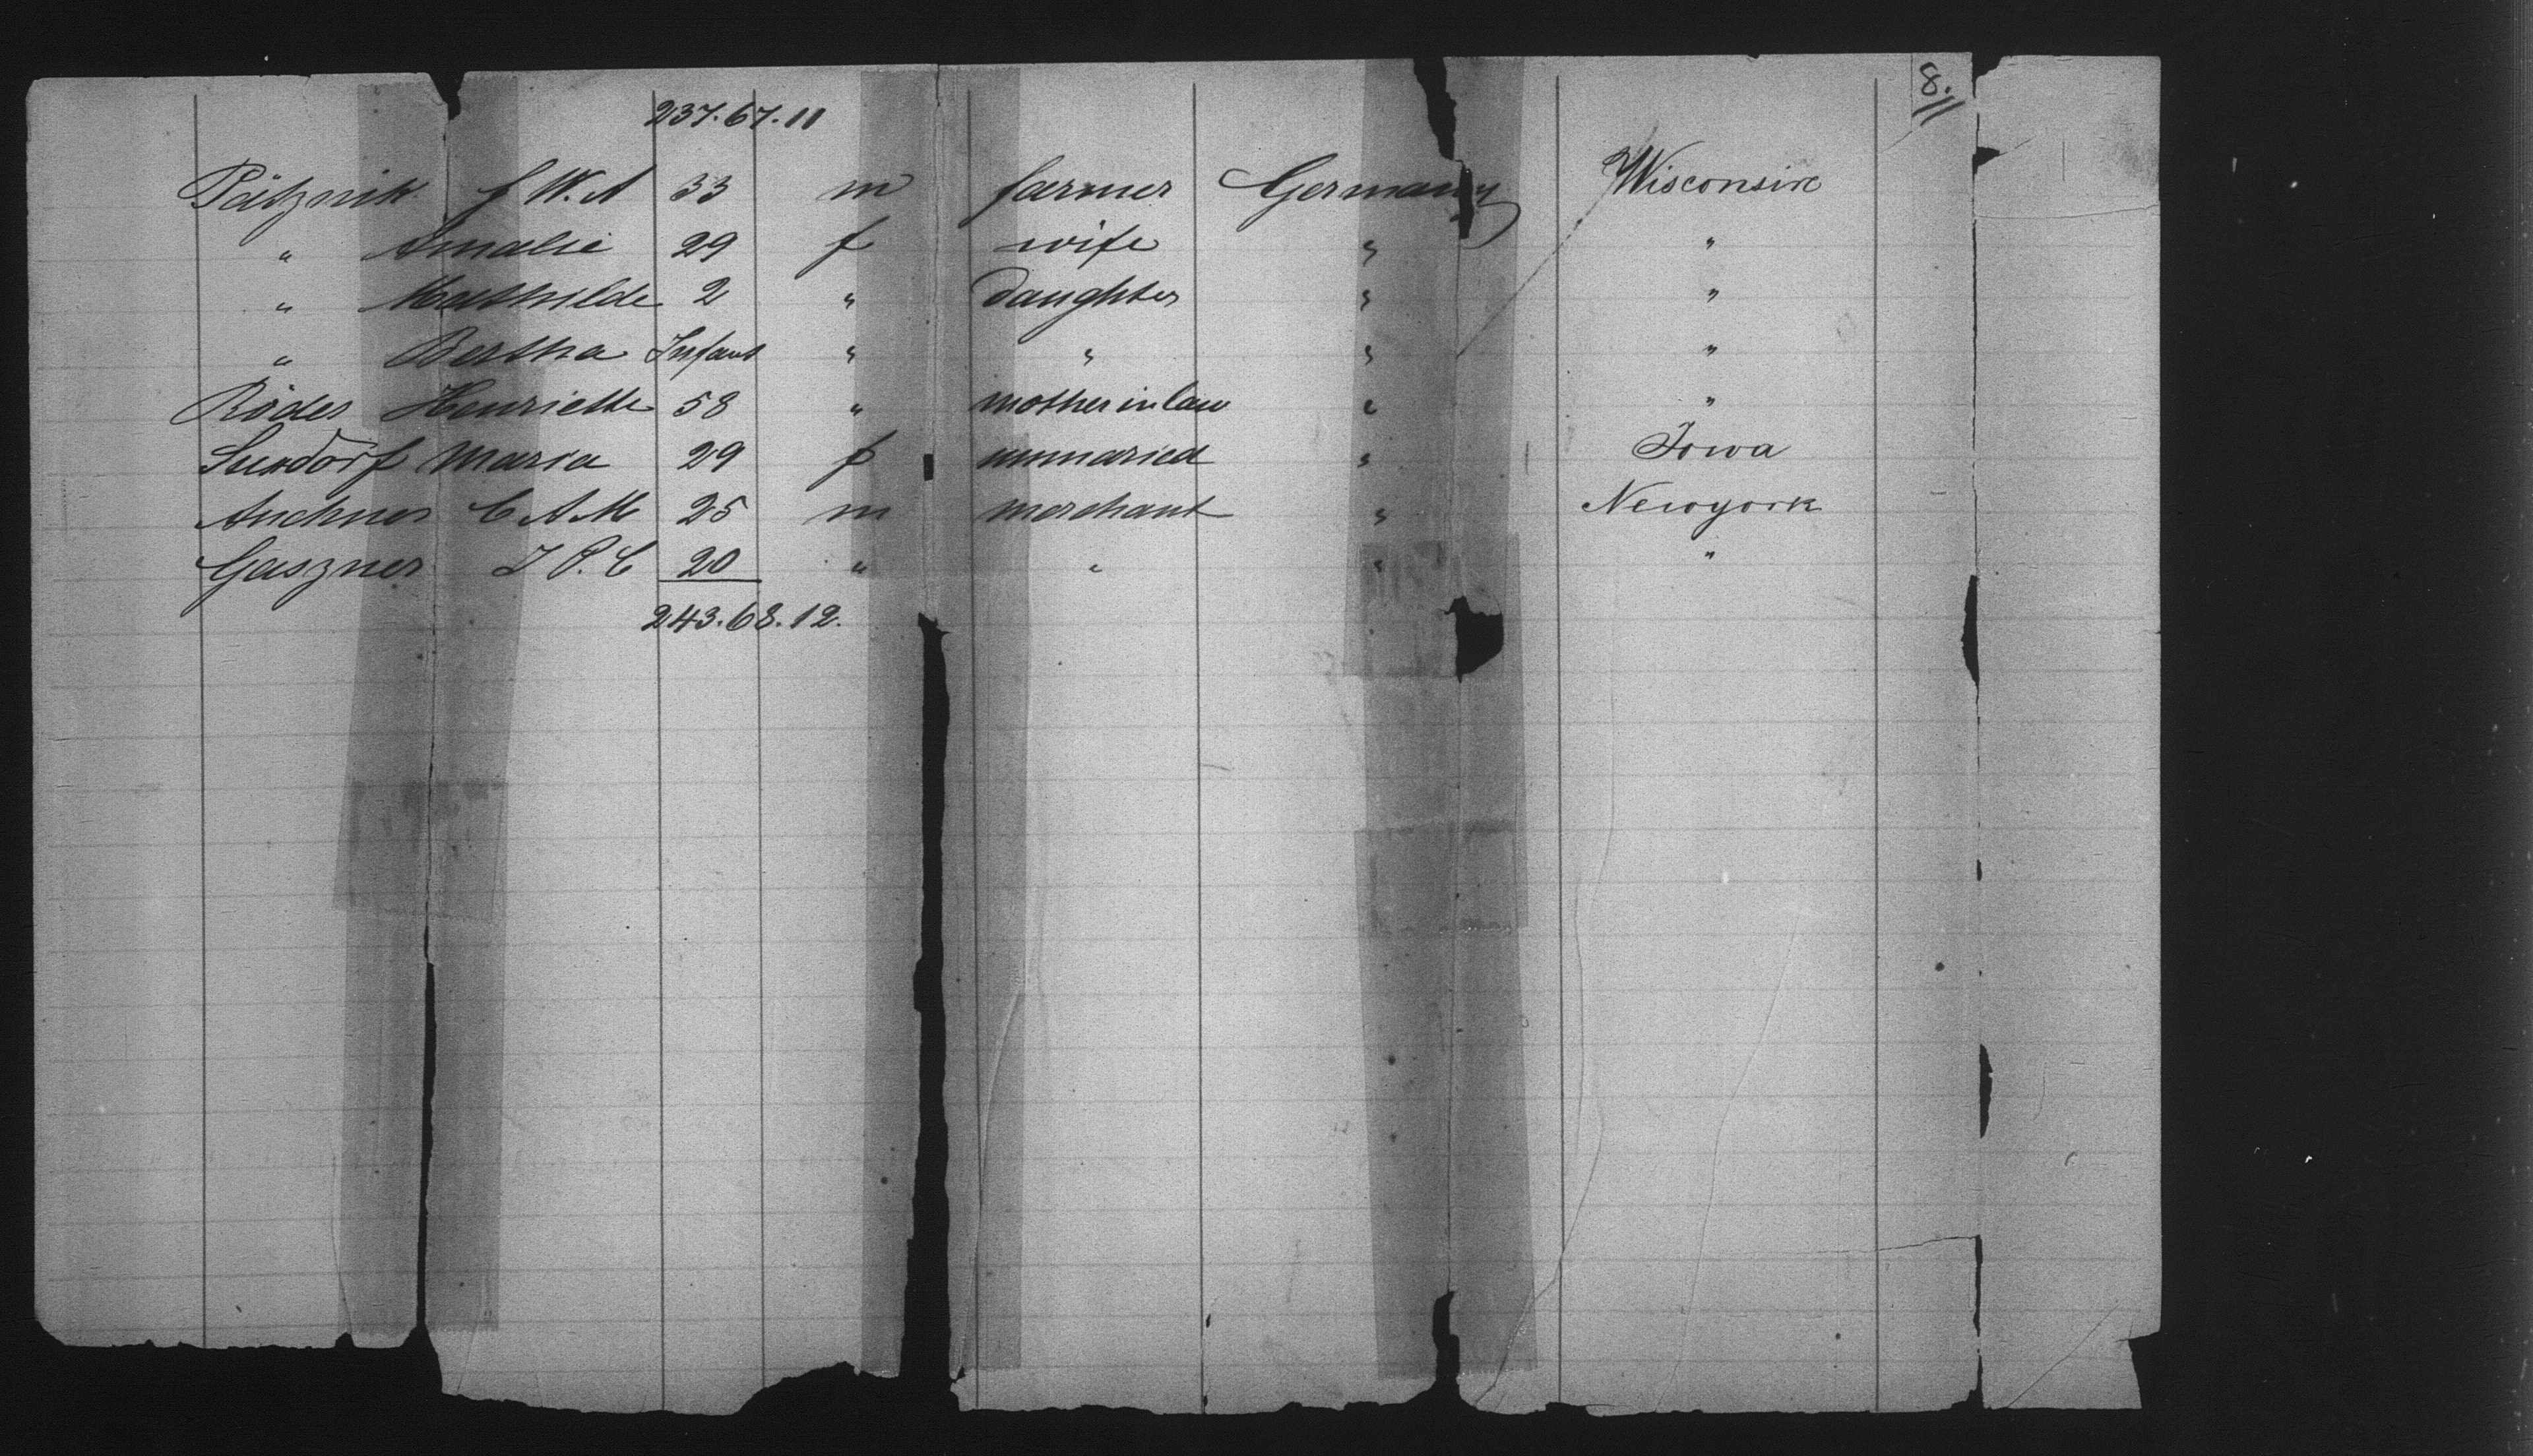 8.
237.67.11
Pätznik f W. A 33 m farmer Germany Wisconsin
" Amalie 29 f wife " "
" Mathilde 2 " daughter " "
" Bertha Infant " " " "
Röder Henriette 58 " mother in law " "
Maria 29 f unmaried " Iowa
C A M 25 m merchant " Newyork
Gaszner I P. C 20 " " " "
243.68.12.